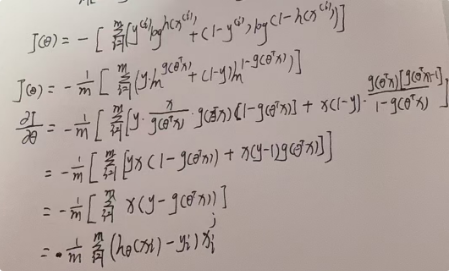 J(θ) = - [ Σ_{i=1}^{m} (y^{(i)} log^{h(x^{(i)})} + (1-y^{(i)}) log^{(1-h(x^{(i)}))} ]
J(θ) = - 1/m [ Σ_{i=1}^{m} (y·ln^{g(θ^T x)} + (1-y) ln^{1-g(θ^T x)} ) ]
∂J/∂θ = - 1/m [ Σ_{i=1}^{m} [ y· x/g(θ^T x) · g(θ^T x) [1-g(θ^T x)] + x(1-y) · g(θ^T x)[g(θ^T x)-1] / 1-g(θ^T x) ]
= - 1/m [ Σ_{i=1}^{m} [ yx(1-g(θ^T x)) + x(y-1)g(θ^T x) ] ]
= - 1/m [ Σ_{i=1}^{m} x(y-g(θ^T x)) ]
= 1/m Σ_{i=1}^{m} (h_θ(x_i) - y_i) x_i^j